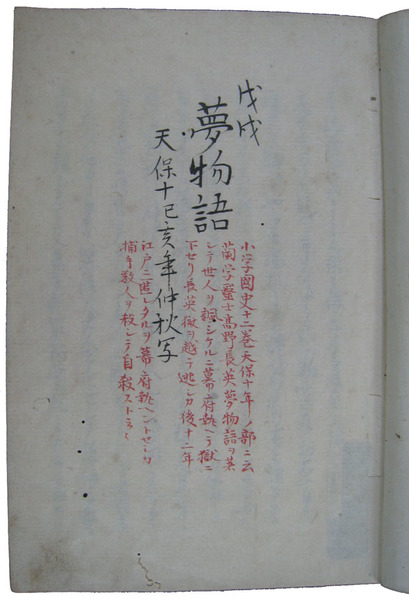 戊戌
夢物語
天保十己亥年仲秋写
小学国史十二巻天保十年ノ部ニ云
蘭学醫士高野長英夢物語ヲ著
シテ世人ヲ諷シケルニ幕府執ヘテ獄ニ
下セリ長英獄ヲ越テ逃レ後十二年
江戸ニ匿レタルヲ幕府執ヘントセシカ
捕手数人ヲ殺シテ自殺ストアリ